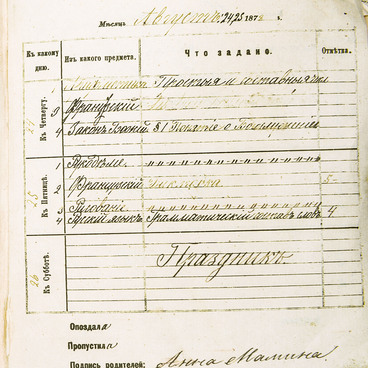 Мѣсяцъ Августъ 24,25 187
Къ какому дню. Изъ какого предмета. Что задано. Отмѣтка.
24 Къ Четвергу.
Простыя и составныя
Французскій
4 Законъ Божій § 1 Понятіе о Богослуженіи
25 Къ Пятницѣ.
1 Рукодѣліе
2 Французскій Диктовка 5
3 Рисованіе
4 Русскій языкъ Грамматическій составъ словъ 4
26 Къ Субботѣ.
Праздникъ.
Опоздала
Пропустила
Подпись родителей: Анна Мамина